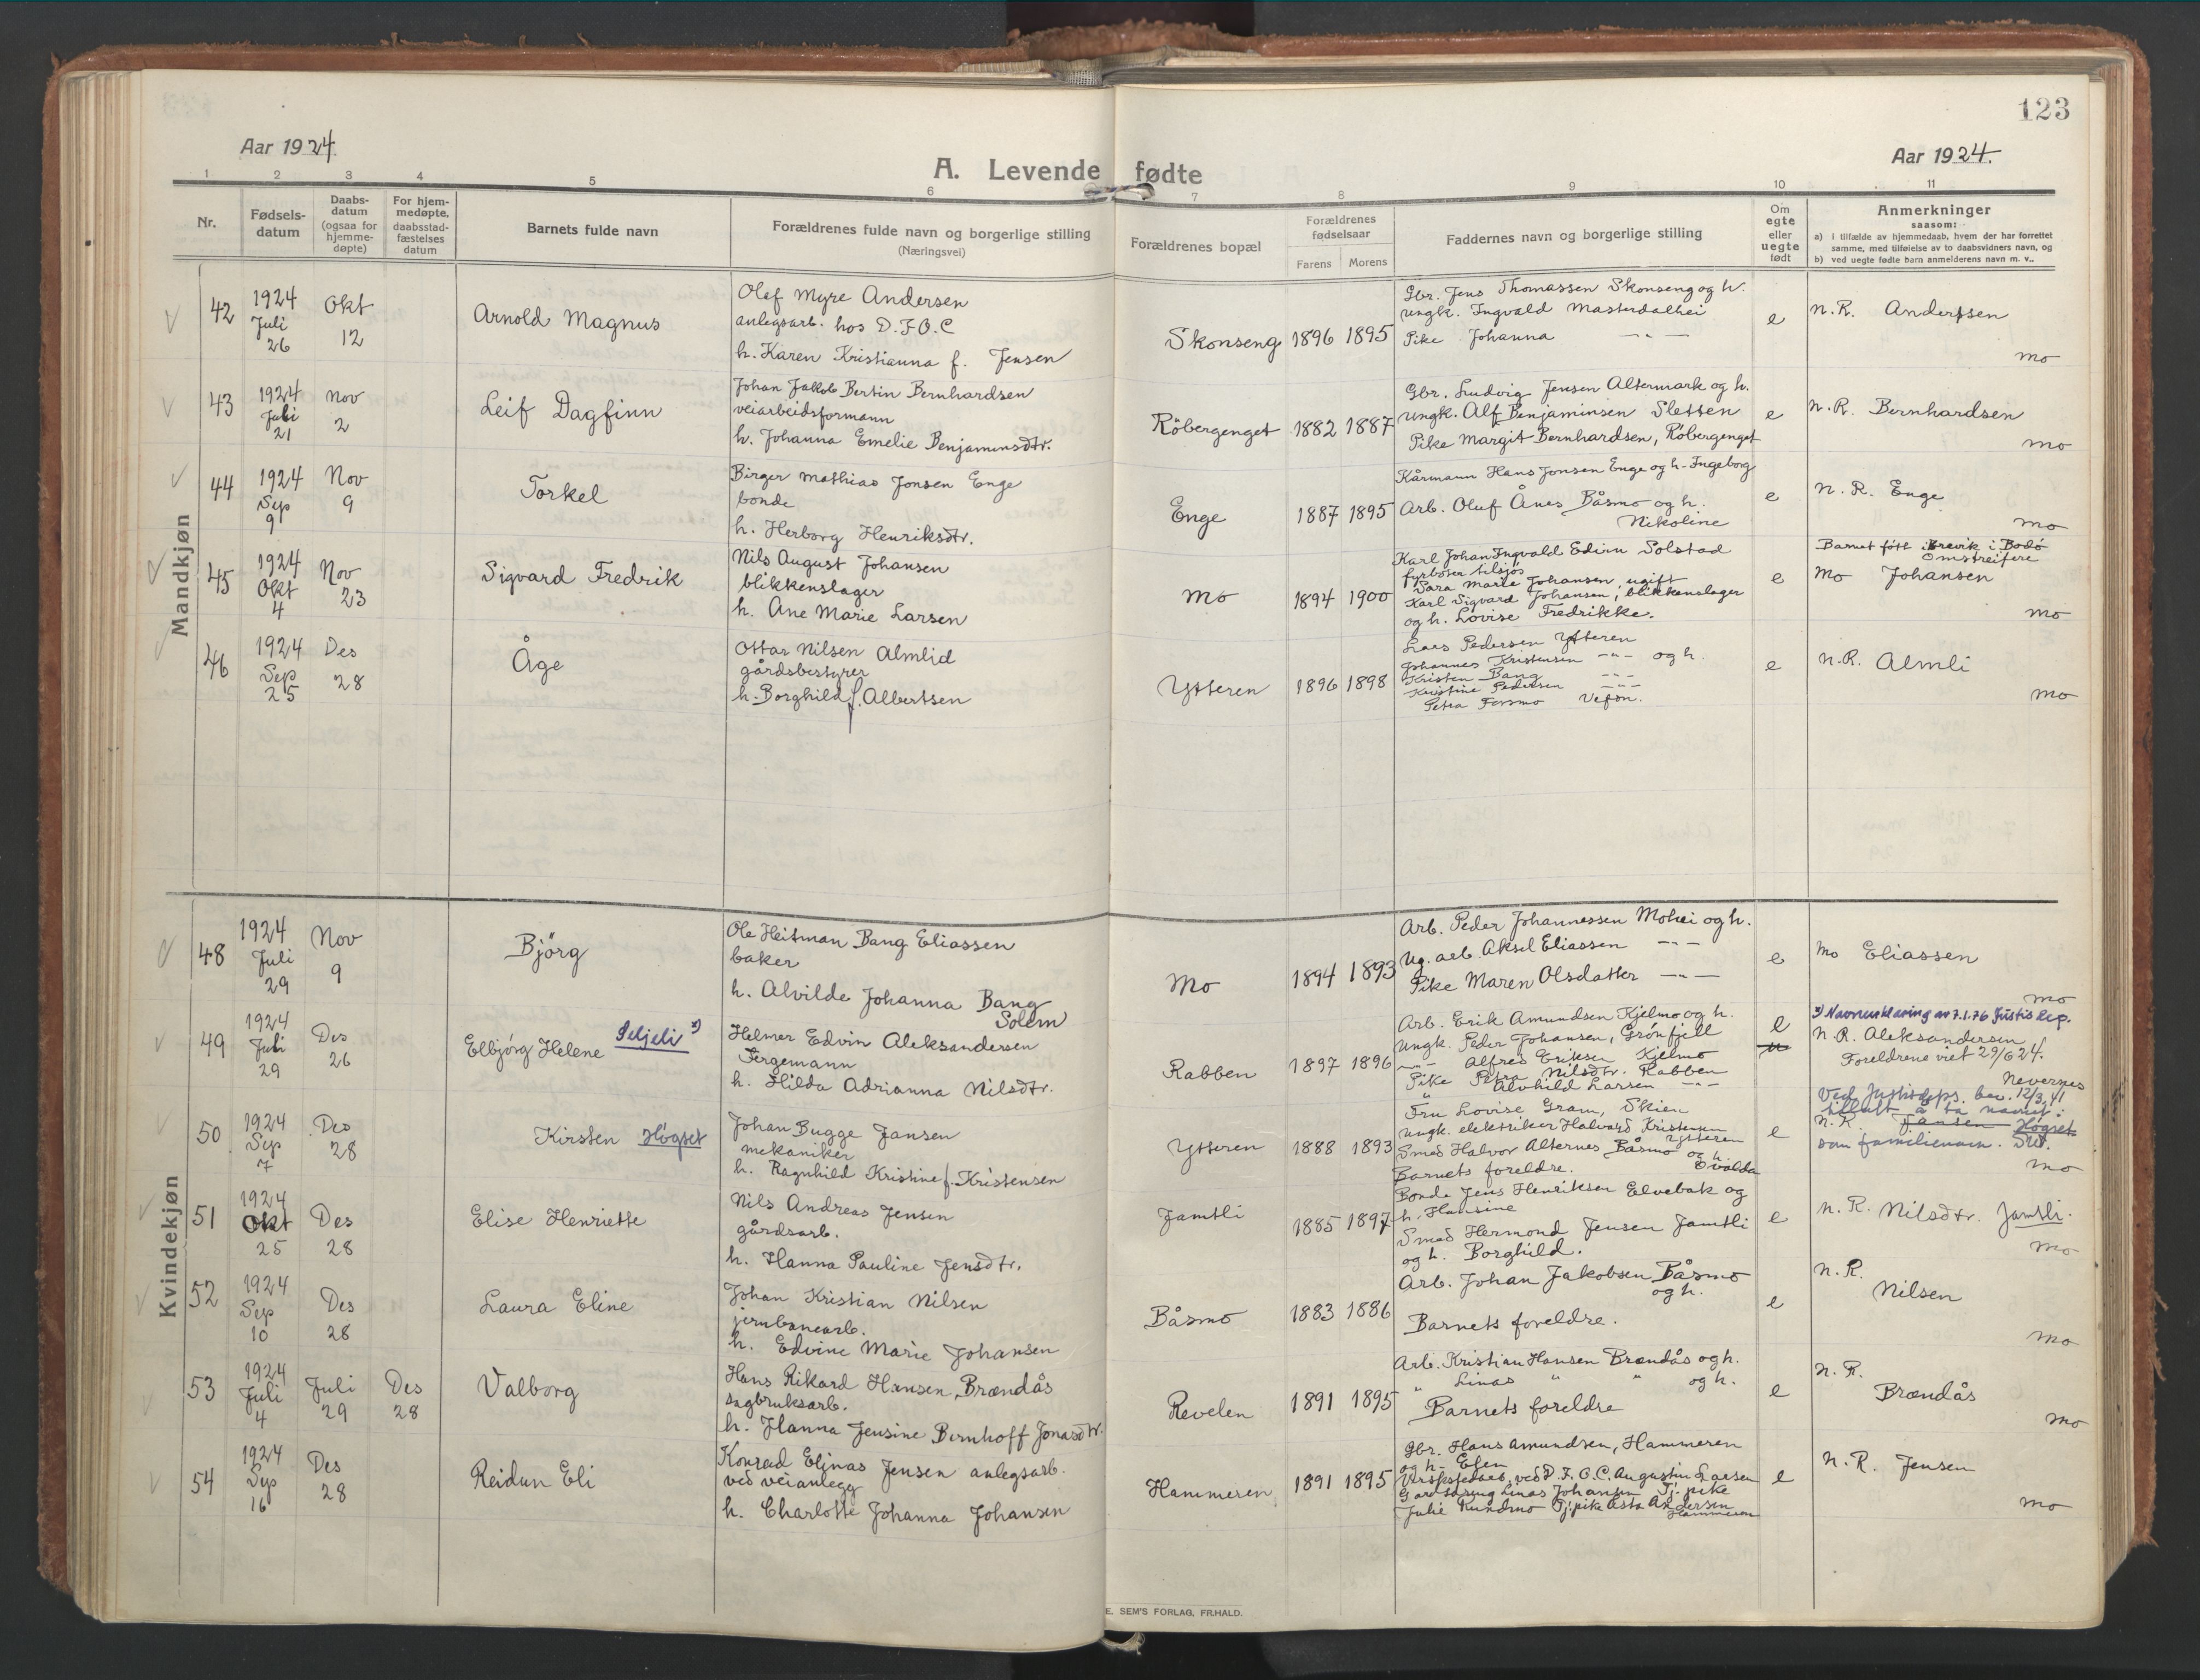 123
Aar 1924.
Aar 1924.
A. Levende fødte
1 2 3 4 5 6 7 8 9 10 11
Nr.
Fødsels-
datum
Daabs-
datum
(ogsaa for
hjemme-
døpte)
For hjem-
medøpte,
daabsstad-
fæstelses
datum
Barnets fulde navn
Forældrenes fulde navn og borgerlige stilling
(Næringsvei)
Forældrenes bopæl
Forældrenes
fødselsaar
Farens Morens
Faddernes navn og borgerlige stilling
Om
egte
eller
uegte
født
Anmerkninger
saasom:
a) i tilfælde av hjemmedaab, hvem der har forrettet
samme, med tilføielse av to daabsvidners navn, og
b) ved uegte fødte barn anmelderens navn m. v..
Mandkjøn
42
1924
Juli
26
Okt
12
Arnold Magnus
Olaf Myre Andersen
anlegsarb. hos D.F.O.C
h. Karen Kristianna f. Jensen
Skonseng
1896 1895
Gbr. Jens Thomassen Skonseng og h.
Ungk. Ingvald Masterdalhei
Pike Johanna -"-
e
N.R. Anderssen
Mo
43
1924
Juli
21
Nov
2
Leif Dagfinn
Johan Jakob Bertin Bernhardsen
veiarbeidsformann
h. Johanna Emelie Benjaminsdtr.
Röbergenget
1882 1887
Gbr. Ludvig Jensen Altermark og h.
Ungk. Alf Benjaminsen Sletten
Pike Margit Bernhardsen, Röbergenget
e
N.R. Bernhardsen
Mo
44
1924
Sep
9
Nov
9
Torkel
Birger Mathias Jonsen Enge
bonde
h. Herborg Henriksdtr.
Enge
1887 1895
Kårmann Hans Jonsen Enge og h. Ingeborg
Arb. Oluf Ånes Båsmo og h.
Nikoline
e
N.R. Enge
Mo
45
1924
Okt
4
Nov
23
Sigvard Fredrik
Nils August Johansen
blikkenslager
h. Ane Marie Larsen
Mo
1894 1900
Karl Johan Ingvald Edvin Solstad
fyrböter tilsjøs
Sara Marie Johansen, ugift
Karl Sigvard Johansen, blikkenslager
og h. Lovise Fredrikke.
e
Barnet fött i Brevik i Bodö
Omstreifere
Mo Johansen
Mo
46
1924
Sep
25
Des
28
Åge
Ottar Nilsen Almlid
gårdsbestyrer
h. Borghild f. Albertsen
Ytteren
1896 1898
Lars Pedersen Ytteren
Johannes Kristensen -"- og h.
Kristen Bang -"-
Kristine Pedersen -"-
Petra Forsmo Vefsn.
e
N.R. Almli
Mo
Kvindekjøn
48
1924
Juli
29
Nov
9
Björg
Ole Heitman Bang Eliassen
baker
h. Alvilde Johanna Bang
Solem
Mo
1894 1893
Arb. Peder Johannessen Mohei og h.
Ug. arb. Aksel Eliassen -"-
Pike Maren Olsdatter -"-
e
Mo Eliassen
Mo
49
1924
Juli
29
Des
26
Elbjörg Helene Seljeli x)
Helmer Edvin Aleksandersen
Fergemann
h. Hilda Adrianna Nilsdtr.
Rabben
1897 1896
Arb. Erik Amundsen Kjelmo og h.
Ungk. Peder Johansen, Grönfjell
-"- Alfred Eriksen Kjelmo
Pike Petra Nilsdtr. Rabben
" Alvhild Larsen -"-
e
x) Navneerklæring av 7.1.76 Justis dep.
N.R. Aleksandersen
Foreldrene viet 29/6 24.
Nevernes
50
1924
Sep
7
Des
28
Kirsten Högset
Johan Bugge Jansen
mekaniker
h. Ragnhild Kristine f. Kristensen
Ytteren
1888 1893
Fru Lovise Gram, Skien
Ungk. elektriker Halvard Kristensen
Ytteren
Smed Halvor Alternes Båsmo og h.
Barnets foreldre.
e
Ved Justisdeps. bev. 12/3.41
tillatt å ta navnet:
N.R. Jansen Högset
som familienavn.
Mo
51
1924
Okt
25
Des
28
Elise Henriette
Nils Andreas Jensen
gårdsarb.
h. Hanna Pauline Jensdtr.
Jamtli
1885 1897
Bonde Jens Henriksen Elvebak og
h. Hansine
Smed Hermond Jensen Jamtli
og h. Borghild.
e
N.R. Nilsdtr. Jamtli.
Mo
52
1924
Sep
10
Des
28
Laura Eline
Johan Kristian Nilsen
jernbanearb.
h. Edvine Marie Johansen
Båsmo
1883 1886
Arb. Johan Jakobsen Båsmo
og h.
Barnets foreldre.
e
N.R.
Nilsen
Mo
53
1924
Juli
4
Juli
29
Des
28
Valborg
Hans Rikard Hansen Brændås
sagbruksarb.
h. Hanna Jensine Bernhoff Jonasdtr.
Revelen
1891 1895
Arb. Kristian Hansen Brændås og h.
" Linas " " og h.
Barnets foreldre
e
N.R.
Brændås
Mo
54
1924
Sep
16
Des
28
Reidun Eli
Konrad Elinas Jensen anlegsarb.
ved veianlegg
h. Charlotte Johanna Johansen
Hammeren
1891 1895
Gbr. Hans Amundsen, Hammeren
og h.
Verkstedarb. ved D.F.O.C. Augustin Larsen
Linas Johansen Tj. pike
Julie Rundmo Tj.pike Asta Andersen
Hammeren
e
N.R. Jensen
Mo
E. SEM'S FORLAG, FR.HALD.